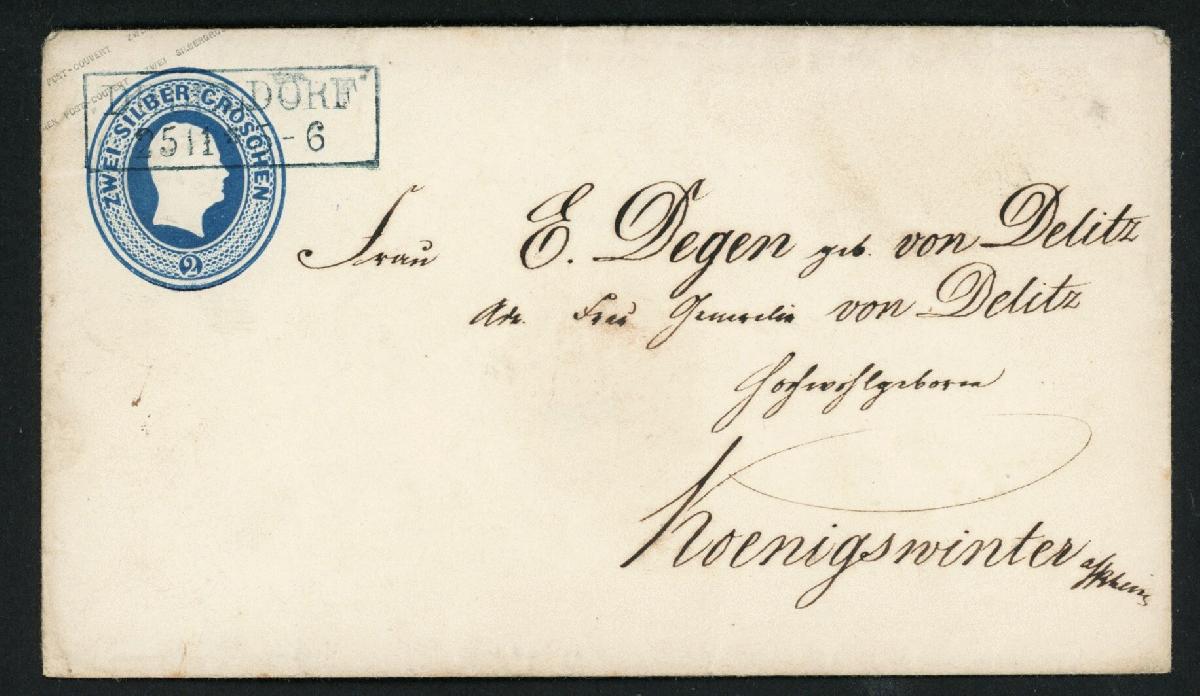 POST-COUVERT ZWEI SILBERGRO
POST-COUVERT
ZWEI SILBER-GROSCHEN
2
DORF
25 11 - 6
Frau E. Degen geb. von Delitz
Adr. Frau Generalin von Delitz
Hochwohlgeboren
Koenigswinter a/Rhein